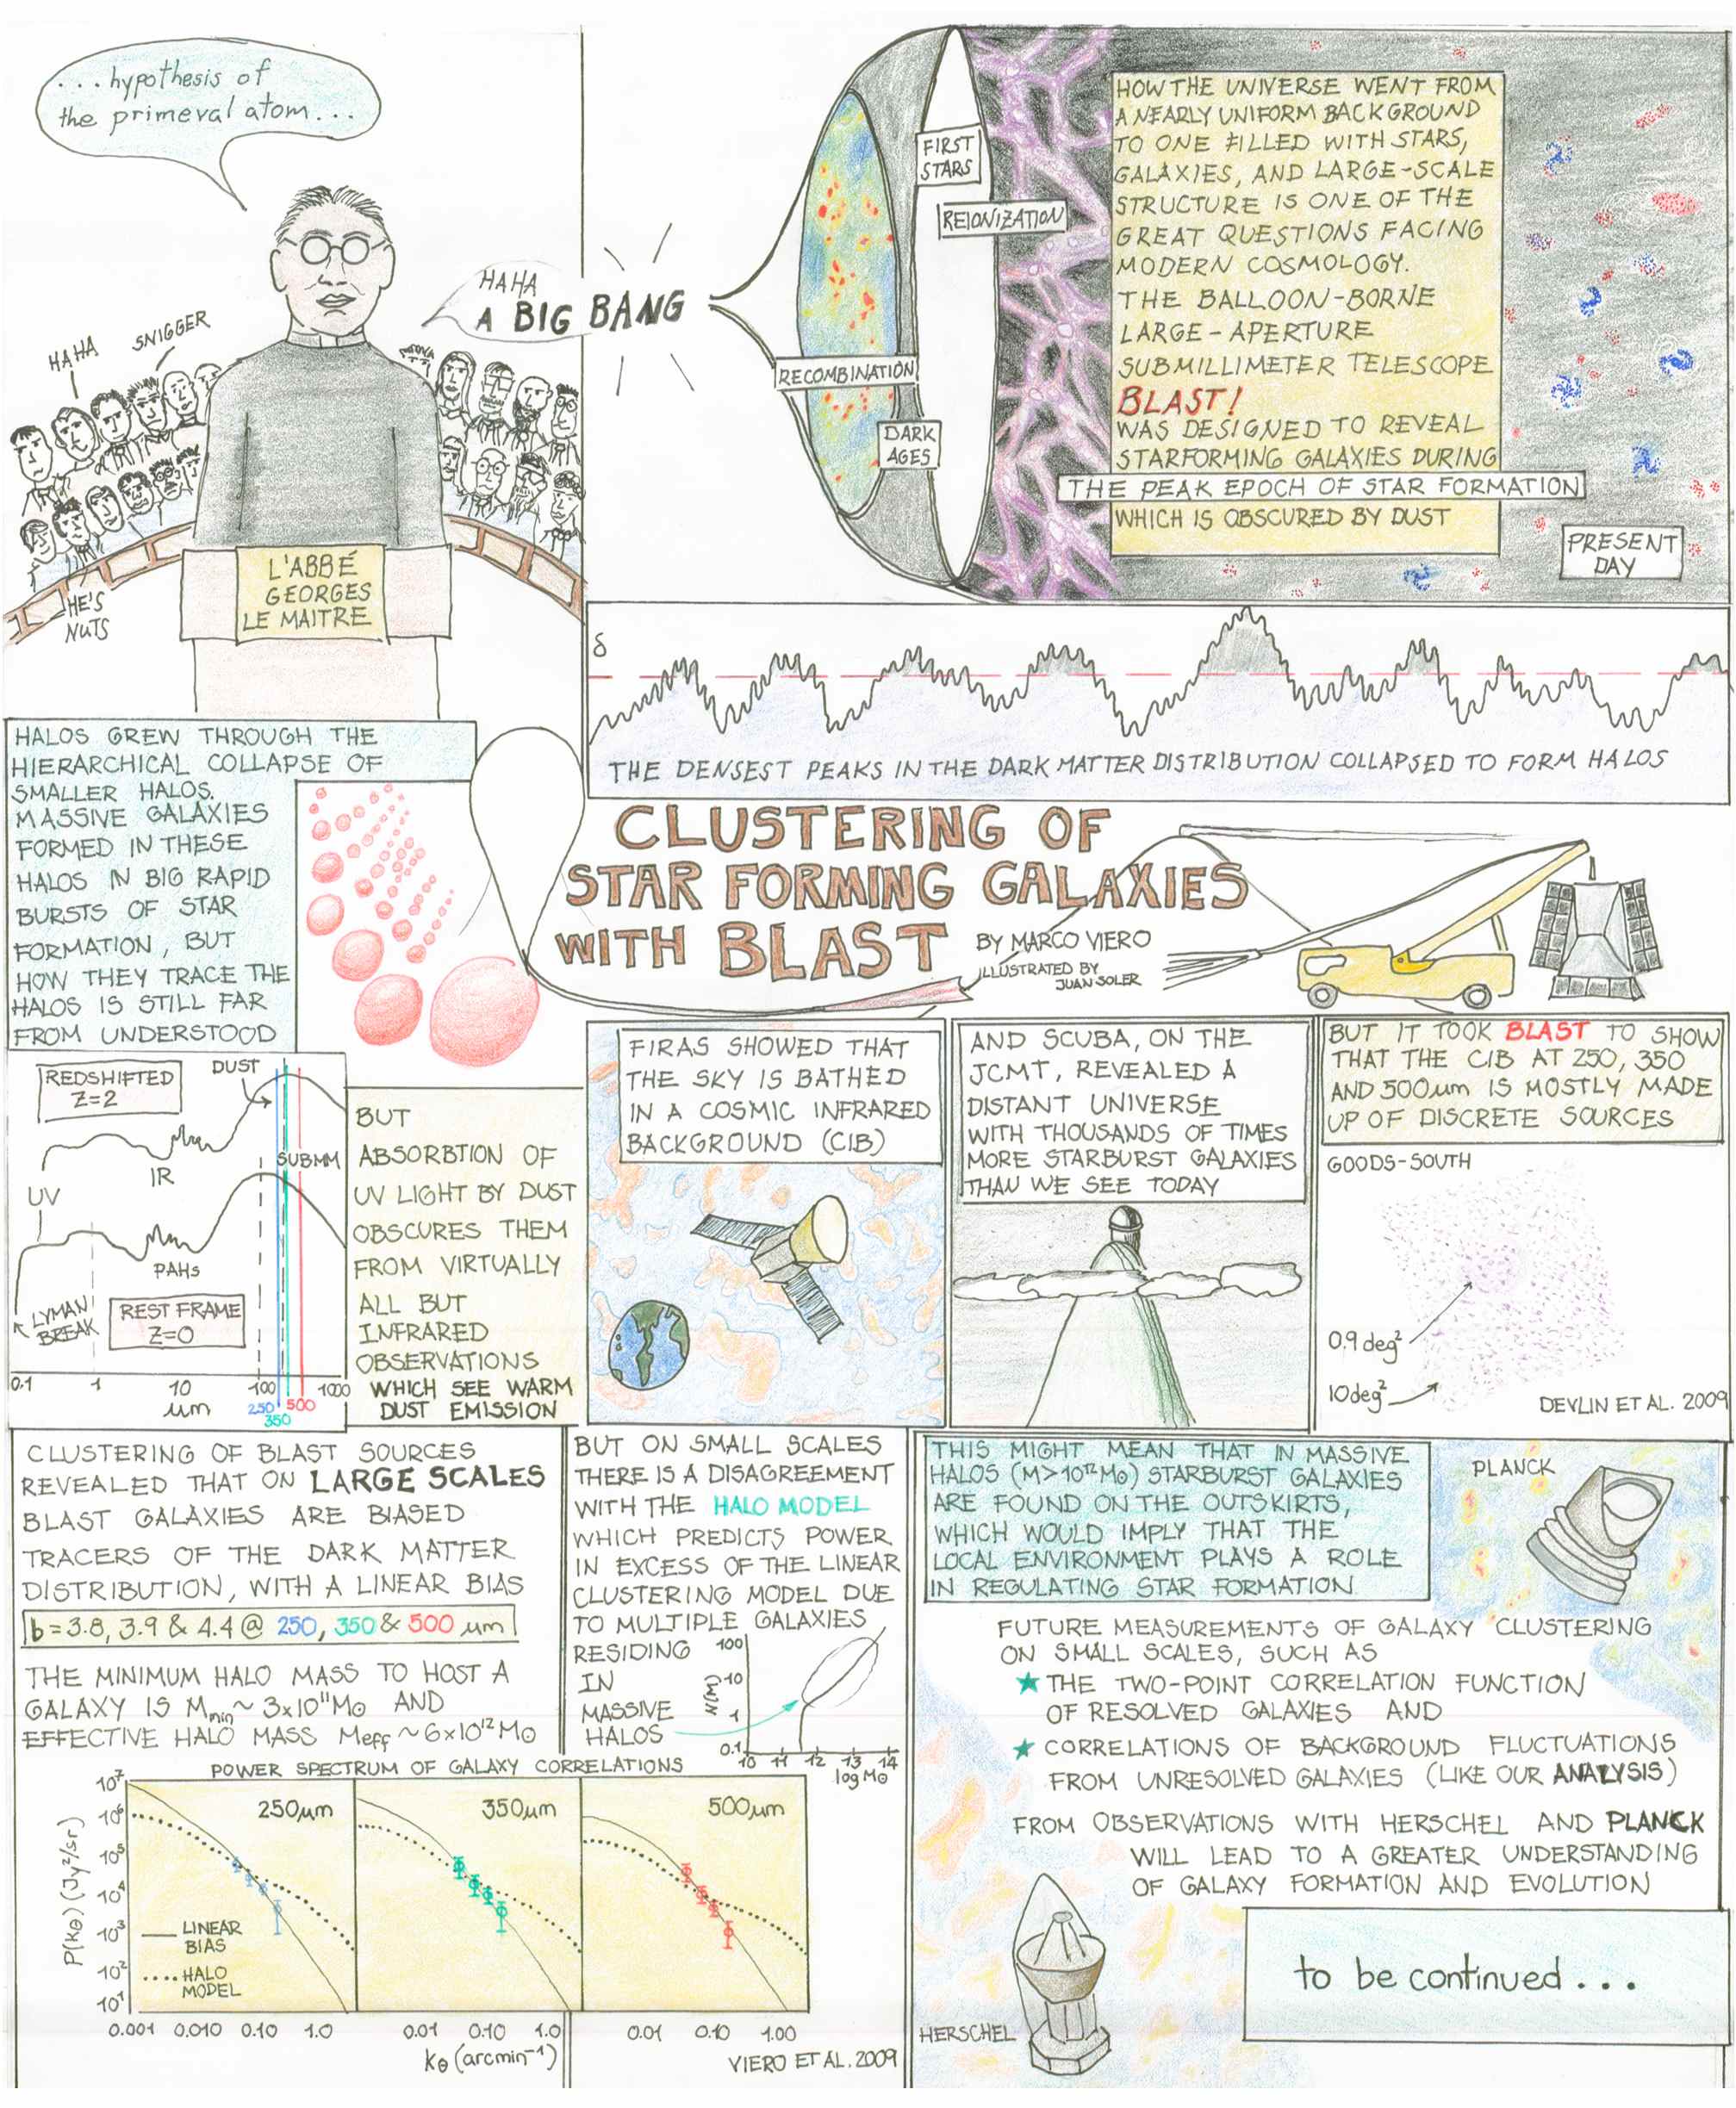 ...hypothesis of
the primeval atom...
HAHA
SNIGGER
HAHA
A BIG BANG
HE'S
NUTS
L'ABBÉ
GEORGES
LE MAITRE
FIRST
STARS
REIONIZATION
RECOMBINATION
DARK
AGES
HOW THE UNIVERSE WENT FROM
A NEARLY UNIFORM BACKGROUND
TO ONE FILLED WITH STARS,
GALAXIES, AND LARGE-SCALE
STRUCTURE IS ONE OF THE
GREAT QUESTIONS FACING
MODERN COSMOLOGY.
THE BALLOON-BORNE
LARGE-APERTURE
SUBMILLIMETER TELESCOPE
BLAST!
WAS DESIGNED TO REVEAL
STARFORMING GALAXIES DURING
THE PEAK EPOCH OF STAR FORMATION
WHICH IS OBSCURED BY DUST
PRESENT
DAY
δ
THE DENSEST PEAKS IN THE DARK MATTER DISTRIBUTION COLLAPSED TO FORM HALOS
HALOS GREW THROUGH THE
HIERARCHICAL COLLAPSE OF
SMALLER HALOS.
MASSIVE GALAXIES
FORMED IN THESE
HALOS IN BIG RAPID
BURSTS OF STAR
FORMATION, BUT
HOW THEY TRACE THE
HALOS IS STILL FAR
FROM UNDERSTOOD
CLUSTERING OF
STAR FORMING GALAXIES
WITH BLAST
BY MARCO VIERO
ILLUSTRATED BY
JUAN SOLER
REDSHIFTED
Z=2
DUST
SUBMM
IR
UV
PAHs
LYMAN
BREAK
REST FRAME
Z=0
0.1 1 10 100 1000
μm
250 500
350
BUT
ABSORBTION OF
UV LIGHT BY DUST
OBSCURES THEM
FROM VIRTUALLY
ALL BUT
INFRARED
OBSERVATIONS
WHICH SEE WARM
DUST EMISSION
FIRAS SHOWED THAT
THE SKY IS BATHED
IN A COSMIC INFRARED
BACKGROUND (CIB)
AND SCUBA, ON THE
JCMT, REVEALED A
DISTANT UNIVERSE
WITH THOUSANDS OF TIMES
MORE STARBURST GALAXIES
THAN WE SEE TODAY
BUT IT TOOK BLAST TO SHOW
THAT THE CIB AT 250, 350
AND 500μm IS MOSTLY MADE
UP OF DISCRETE SOURCES
GOODS-SOUTH
0.9 deg²
10 deg²
DEVLIN ET AL. 2009
CLUSTERING OF BLAST SOURCES
REVEALED THAT ON LARGE SCALES
BLAST GALAXIES ARE BIASED
TRACERS OF THE DARK MATTER
DISTRIBUTION, WITH A LINEAR BIAS
b=3.8, 3.9 & 4.4 @ 250, 350 & 500 μm
THE MINIMUM HALO MASS TO HOST A
GALAXY IS Mmin ~ 3x10¹¹M⊙ AND
EFFECTIVE HALO MASS Meff ~ 6x10¹²M⊙
BUT ON SMALL SCALES
THERE IS A DISAGREEMENT
WITH THE HALO MODEL
WHICH PREDICTS POWER
IN EXCESS OF THE LINEAR
CLUSTERING MODEL DUE
TO MULTIPLE GALAXIES
RESIDING
IN
MASSIVE
HALOS
100
10
1
0.1
N(M)
10 11 12 13 14
log M⊙
POWER SPECTRUM OF GALAXY CORRELATIONS
P(kθ) (Jy²/sr)
10⁷
10⁶
10⁵
10⁴
10³
10²
10¹
250μm
350μm
500μm
LINEAR
BIAS
HALO
MODEL
0.001 0.010 0.10 1.0
0.01 0.10 1.0
0.01 0.10 1.00
kθ (arcmin⁻¹)
VIERO ET AL. 2009
THIS MIGHT MEAN THAT IN MASSIVE
HALOS (M>10¹²M⊙) STARBURST GALAXIES
ARE FOUND ON THE OUTSKIRTS,
WHICH WOULD IMPLY THAT THE
LOCAL ENVIRONMENT PLAYS A ROLE
IN REGULATING STAR FORMATION
PLANCK
FUTURE MEASUREMENTS OF GALAXY CLUSTERING
ON SMALL SCALES, SUCH AS
★ THE TWO-POINT CORRELATION FUNCTION
OF RESOLVED GALAXIES AND
★ CORRELATIONS OF BACKGROUND FLUCTUATIONS
FROM UNRESOLVED GALAXIES (LIKE OUR ANALYSIS)
FROM OBSERVATIONS WITH HERSCHEL AND PLANCK
WILL LEAD TO A GREATER UNDERSTANDING
OF GALAXY FORMATION AND EVOLUTION
HERSCHEL
to be continued...